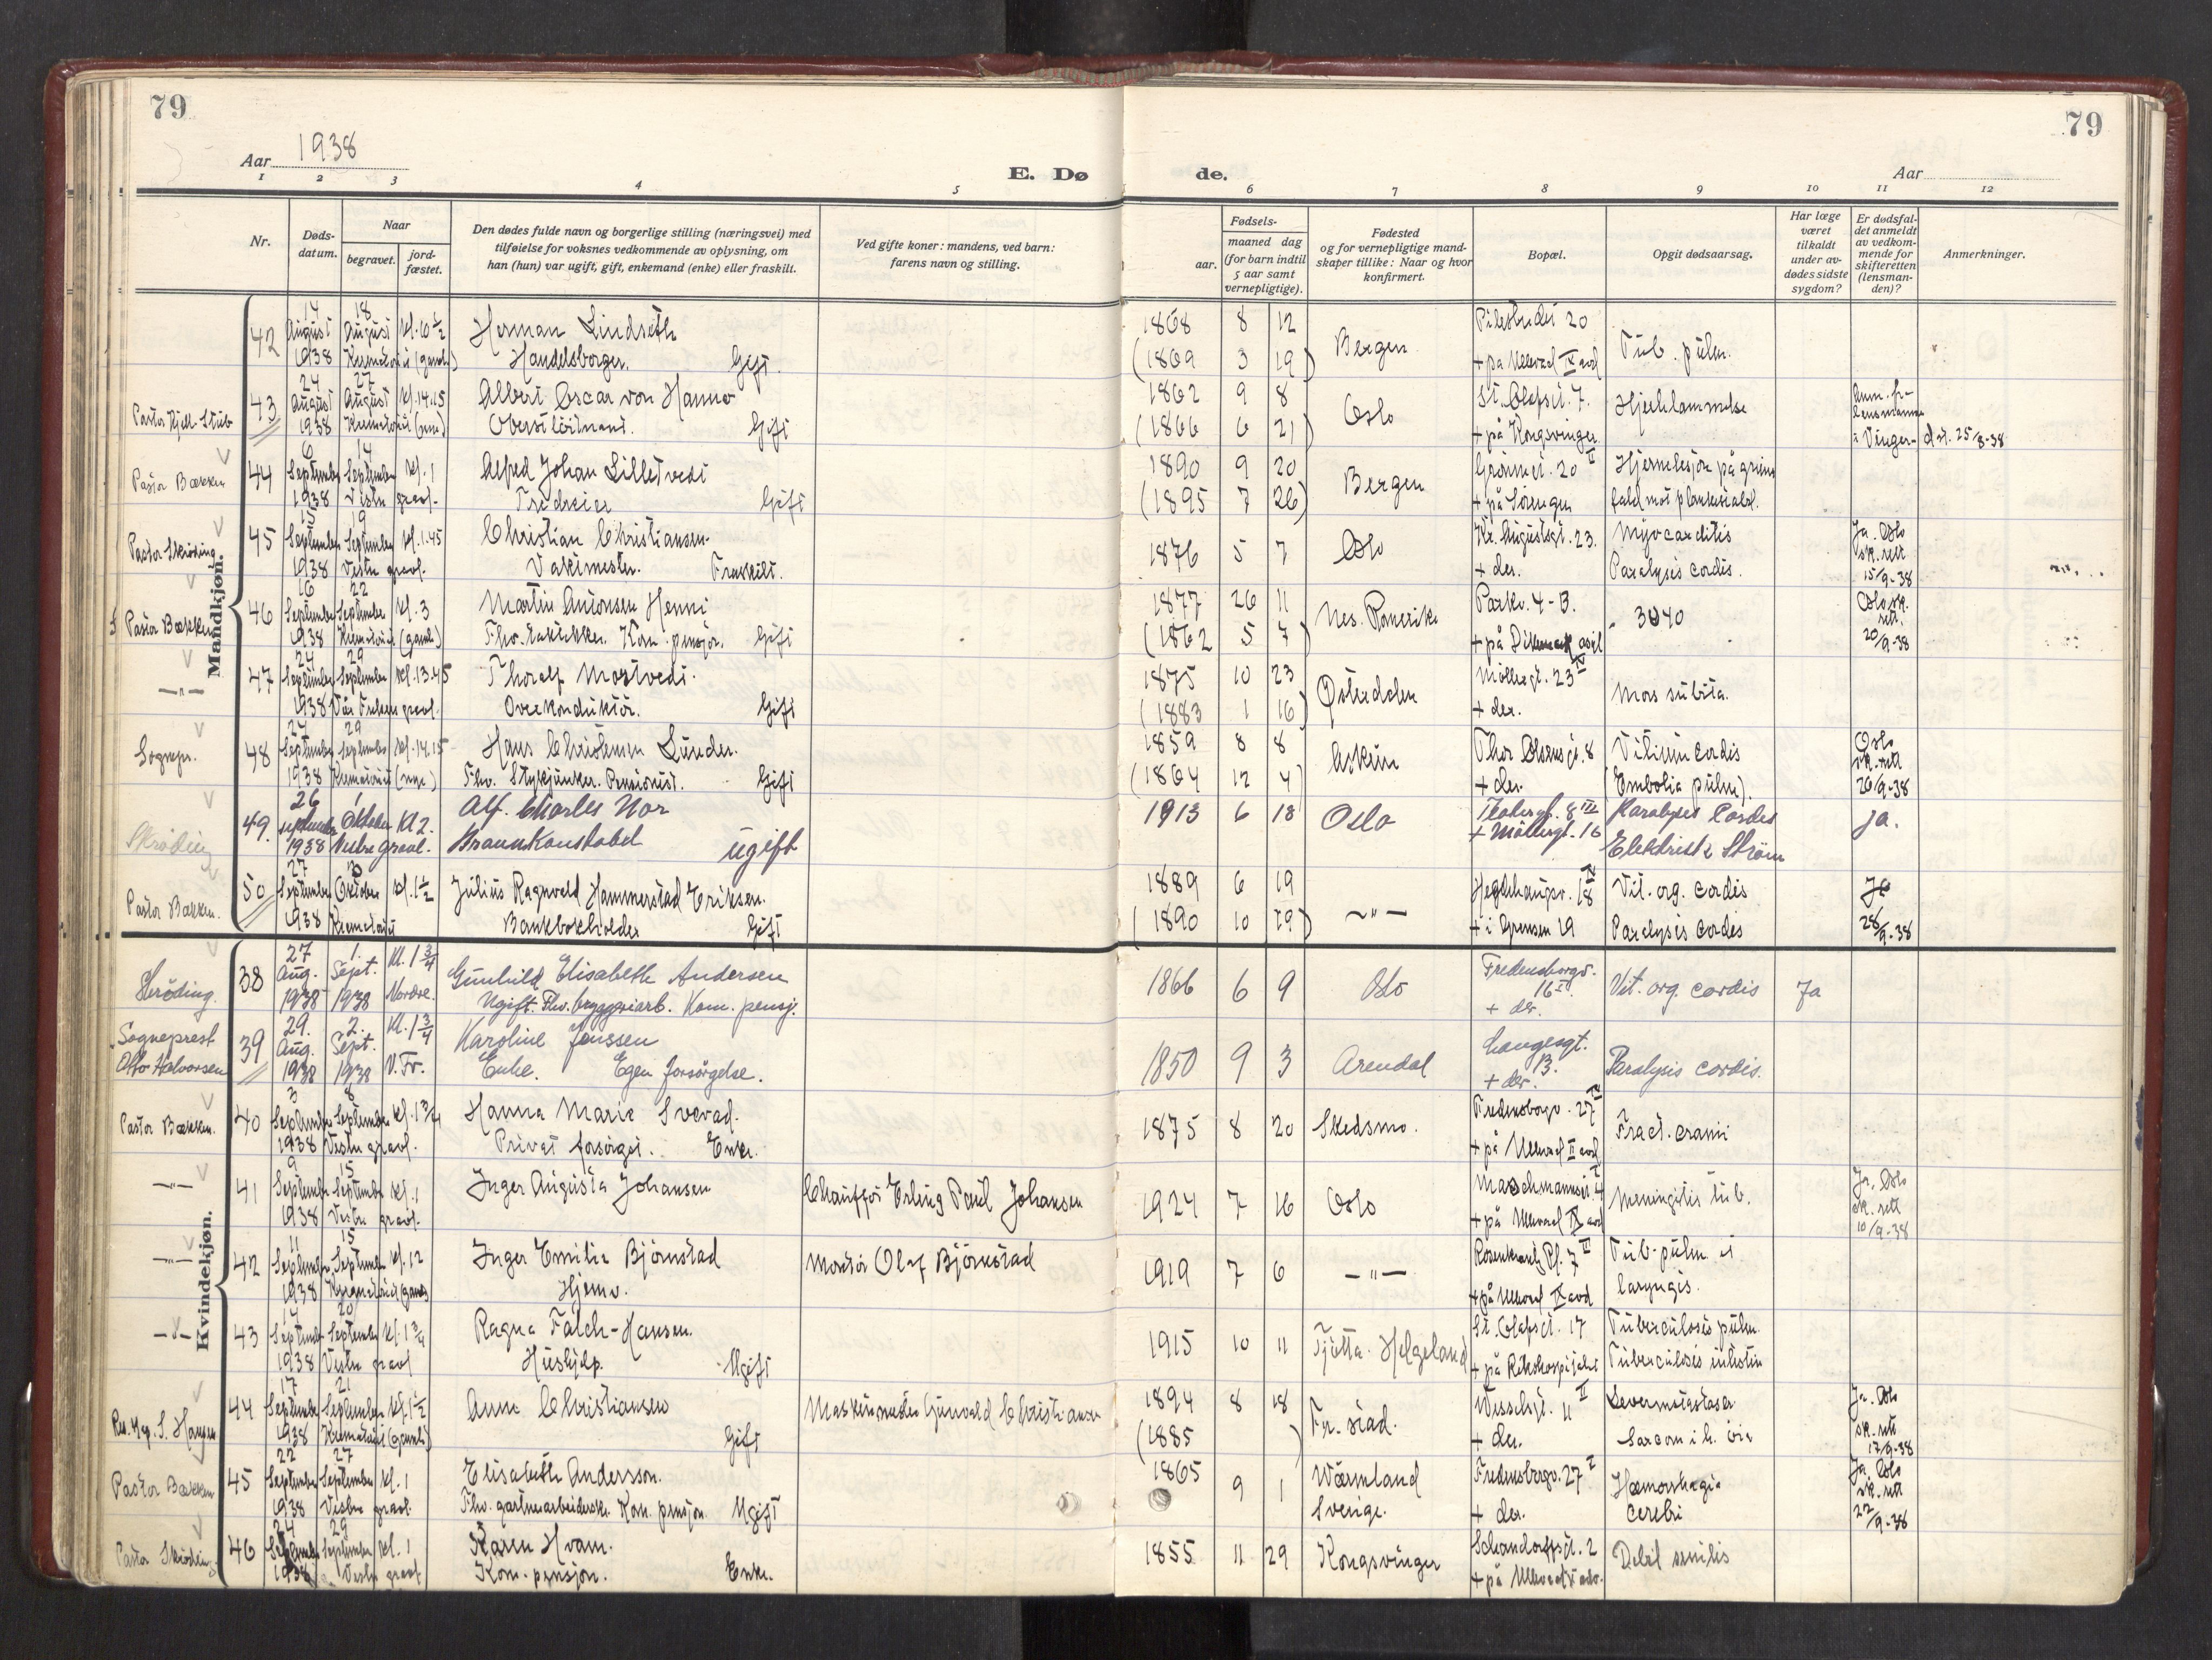 79
79
Aar 1938
E. Dø
de.
Aar
1 2 3 4 5 6 7 8 9 10 11 12
Nr.
Døds-
datum.
Naar
begravet.
jord-
fæstet.
Den dødes fulde navn og borgerlige stilling (næringsvei) med
tilføielse for voksnes vedkommende av oplysning, om
han (hun) var ugift, gift, enkemand (enke) eller fraskilt.
Ved gifte koner: mandens, ved barn:
farens navn og stilling.
Fødsels-
aar.
maaned dag
(for barn indtil
5 aar samt
vernepligtige).
Fødested
og for vernepligtige mand-
skaper tillike: Naar og hvor
konfirmert.
Bopæl.
Opgit dødsaarsag.
Har læge
været
tilkaldt
under av-
dødes sidste
sygdom?
Er dødsfal-
det anmeldt
av vedkom-
mende for
skifteretten
(lensman-
den)?
Anmerkninger.
Mandkjøn.
14 18
42 August August Kl. 10 1/2 Herman Lindseth 1868 8 12 Bergen Pilestredet 20 Tub. pulm.
1938 Krematoriet (gamle) Handelsborger. Gift. (1869 3 19) + på Ullevaal IX avd
24 27
Pastor Kjell Stub 43 August August Kl. 14.15 Albert Oscar von Hanno 1862 9 8 Oslo St. Olafsgt. 7. Hjertelammelse Anm. fr. lensmannen
1938 Krematoriet (nye) Oberstløitnant. Gift (1866 6 21) + på Kongsvinger i Vinger d.d. 25/8-38
6 14
Pastor Bækken 44 September September Kl. 1 Alfred Johan Lilletvedt 1890 9 20 Bergen Grønnegt. 20 II Hjernelesjon på grunn
1938 Vestre gravl. Gift (1895 7 26) + på Sørengen fald mot plankestabel.
15 19
Pastor Skrøding. 45 September September Kl. 1.45 Christian Christiansen. 1876 5 7 Oslo Kr. Augustsgt. 23. Myocarditis Ja. Oslo
1938 Vestre gravl. Vaktmester. Fraskilt. + der. Paralysis cordis. sk. rett 15/9-38
16 22
Pastor Bækken 46 September September Kl. 3 Martin Antonsen Henni 1877 26 11 Nes. Romerike Parkv. 4-B. 3040 Oslo sk. rett.
1938 Krematoriet (gamle) Kom. pensjon. Gift (1862 5 7) + på Dikemark asyl 20/9-38
24 29
-"- 47 September September Kl. 13.45 Thoralf Mostvedt. 1875 10 23 Østerdalen Møllergt. 23 IV Mors subita.
1938 Vår Frelsers gravl. Overkonduktør. Gift (1883 1 16) + der.
27 29
Sognepr. 48 September September Kl. 14.15 Hans Christensen Lunder. 1859 8 8 Askim Thor Olsens gt. 8 Vitium cordis Oslo sk. rett
1938 Krematoriet (nye) Fhv. Stykjunker. Pensionist. Gift (1864 12 4) + der. (Embolia pulm). 26/9-38
26 1
Skrøding 49. september Oktober Kl 2. Alf. Charles Nor 1913 6 18 Oslo + Møllergt. 16 Paralysis Cordis ja.
1938 Vestre gravl. Brannkonstabel ugift Elektrisk Strøm
27 3
Pastor Bækken. 50 September Oktober Kl. 1 1/2 Julius Ragnvald Hammerstad Eriksen. 1889 6 19 -"- Hegdehaugsv. 18 IV Vit. org. cordis Ja
1938 Krematoriet Bankbokholder Gift (1890 10 29) + i Grensen 19 Paralysis cordis 28/9-38
Kvindekjøn.
27 1.
Skrøding. 38 Aug. Sept. Kl. 1 3/4 Gunhild Elisabeth Andersen 1866 6 9 Oslo Fredensborgv. 16 II. Vit. org. cordis Ja
1938 1938 Nordre. Ugift. Fhv. bryggeriarb. Kom. pensj. + der.
29. 2.
Sogneprest Otto Halvorsen 39 Aug. Sept. Kl. 1 3/4 Karoline Jenssen 1850 9 3 Arendal Langesgt. 13. Paralysis cordis.
1938 1938 V. Fr. Enke. Egen forsørgelse. + der.
3 8
Pastor Bækken. 40 September September Kl. 1 3/4 Hanna Marie Sverad. 1875 8 20 Skedsmo. Fredensborgv. 27 IV Fract. cranii
1938 Vestre gravl. Privat forsørget. Enke. + på Ullevaal II avd
9 15
-"- 41 September September Kl. 1 Inger Augusta Johansen Chauffør Erling Paul Johansen 1924 7 16 Oslo Meningitis tub. Ja. Oslo sk. rett
1938 Vestre gravl. + på Ullevaal IX avd 10/9-38
11 15
-"- 42 September September Kl. 12 Inger Emilie Bjørnstad Montør Olaf Bjørnstad 1919 7 6 -"- Rosenkrantz Pl. 7 II Tub. pulm et
1938 Krematoriet (gamle) Hjemv. + på Ullevaal IX avd laryngis.
14 20
-"- 43 September September Kl. 1 3/4 Ragna Falch-Hansen. 1915 10 11 Tjøtta. Helgeland St. Olafsgt. 17 Tuberculosis pulm.
1938 Vestre gravl Hushjelp. Ugift + på Rikshospitalet Tuberculosis intestin
17 21
Res. kap. S. Hansen 44 September September Kl. 1 1/2 Anna Christiansen Maskinmester Gunvald Christiansen 1894 8 18 Fr. stad. Wesselsgt. 11 II Levermetastaser Ja. Oslo
1938 Krematoriet (gamle) Gift (1885 ) + der. Sarcom i h. øie sk. rett 17/9-38
22 27
Pastor Bækken 45 September September Kl. 1 Elisabeth Andersson. 1865 9 1 Wärmland Fredensborgv. 27 I Hæmorrhagia Ja Oslo sk. rett
1938 Vestre gravl. Fhv. gartneriarbeiderske. Kom. pensjon. Ugift Sverige. + der. cerebri 22/9-38
24 29
Pastor Skrøding 46 September September Kl. 1 Karen Hvam. 1855 11 29 Kongsvinger Schandorffsgt. 2 Debil senilis
1938 Vestre gravl Kom. pensjon. Enke. + på Ullevaal avd.